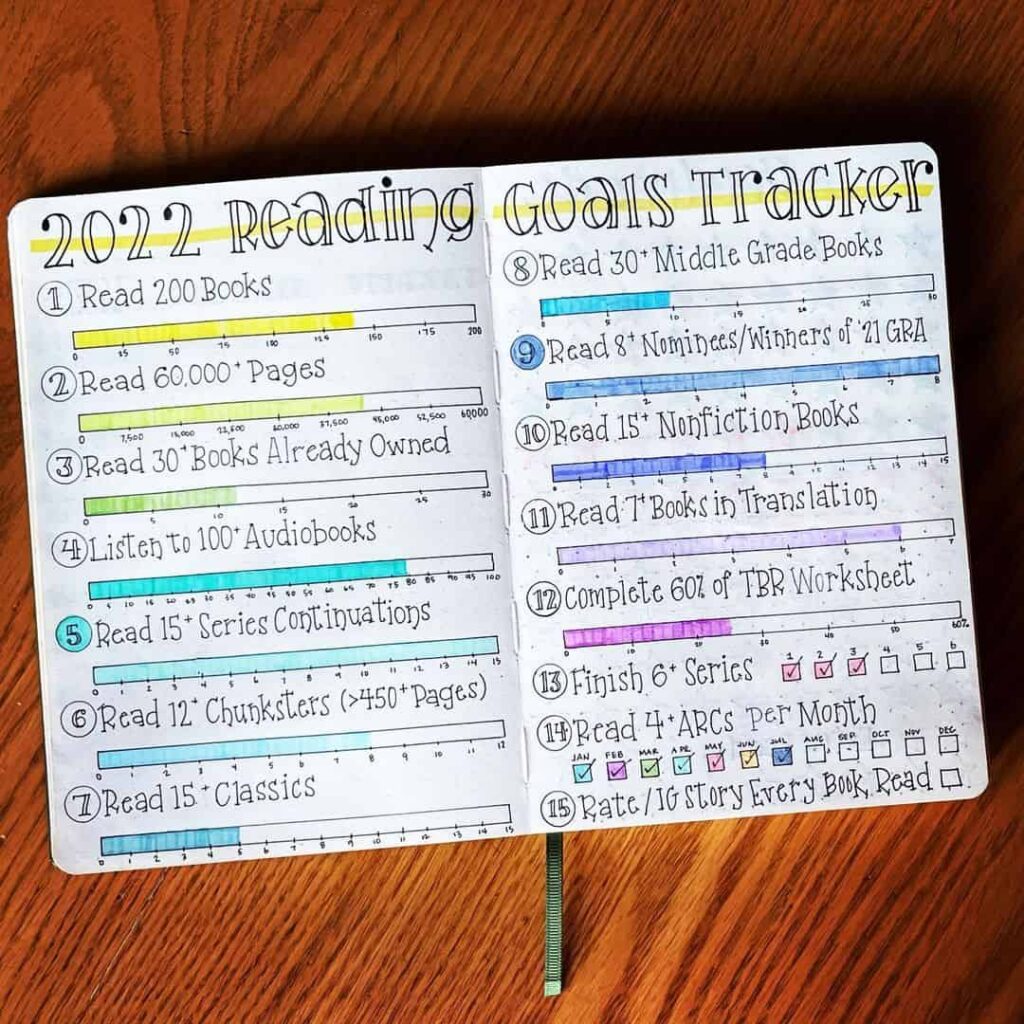 2022 Reading
① Read 200 Books
0 25 50 75 100 125 150 175 200
② Read 60,000+ Pages
0 7,500 15,000 22,500 30,000 37,500 45,000 52,500 60,000
③ Read 30+ Books Already Owned
0 5 10 15 20 25 30
④ Listen to 100+ Audiobooks
0 5 10 15 20 25 30 35 40 45 50 55 60 65 70 75 80 85 90 95 100
⑤ Read 15+ Series Continuations
0 1 2 3 4 5 6 7 8 9 10 11 12 13 14 15
⑥ Read 12+ Chunksters (>450+ Pages)
0 1 2 3 4 5 6 7 8 9 10 11 12
⑦ Read 15+ Classics
0 1 2 3 4 5 6 7 8 9 10 11 12 13 14 15
Goals Tracker
⑧ Read 30+ Middle Grade Books
0 5 10 15 20 25 30
⑨ Read 8+ Nominees/Winners of '21 GRA
0 1 2 3 4 5 6 7 8
⑩ Read 15+ Nonfiction Books
0 1 2 3 4 5 6 7 8 9 10 11 12 13 14 15
⑪ Read 7+ Books in Translation
0 1 2 3 4 5 6 7
⑫ Complete 60% of TBR Worksheet
0 10 20 30 40 50 60%
⑬ Finish 6+ Series 1 2 3 4 5 6
⑭ Read 4+ ARCs per Month
JAN FEB MAR APR MAY JUN JUL AUG SEP OCT NOV DEC
⑮ Rate/IG Story Every Book Read